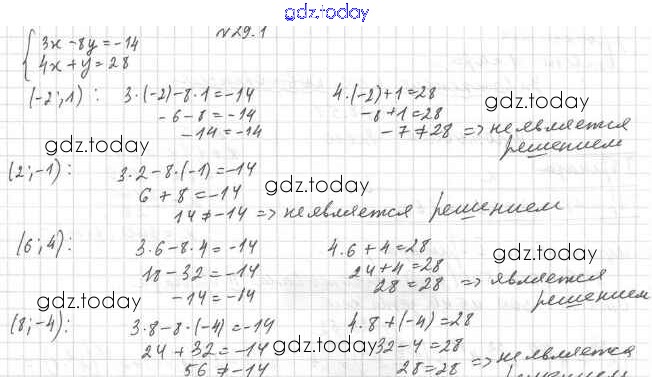 gdz.today
№29.1
{ 3x - 8y = -14
4x + y = 28
(-2; 1): 3·(-2) - 8·1 = -14 4·(-2) + 1 = 28
-6 - 8 = -14 -8 + 1 = 28 gdz.today
-14 = -14 -7 ≠ 28 => не является
gdz.today решением
(2; -1): 3·2 - 8·(-1) = -14
6 + 8 = -14 gdz.today
14 ≠ -14 => не является решением
(6; 4): 3·6 - 8·4 = -14 4·6 + 4 = 28 gdz.today
18 - 32 = -14 24 + 4 = 28
-14 = -14 28 = 28 => является
gdz.today решением
(8; -4): 3·8 - 8·(-4) = -14 4·8 + (-4) = 28
24 + 32 = -14 gdz.today 32 - 4 = 28
56 ≠ -14 28 = 28 => не является